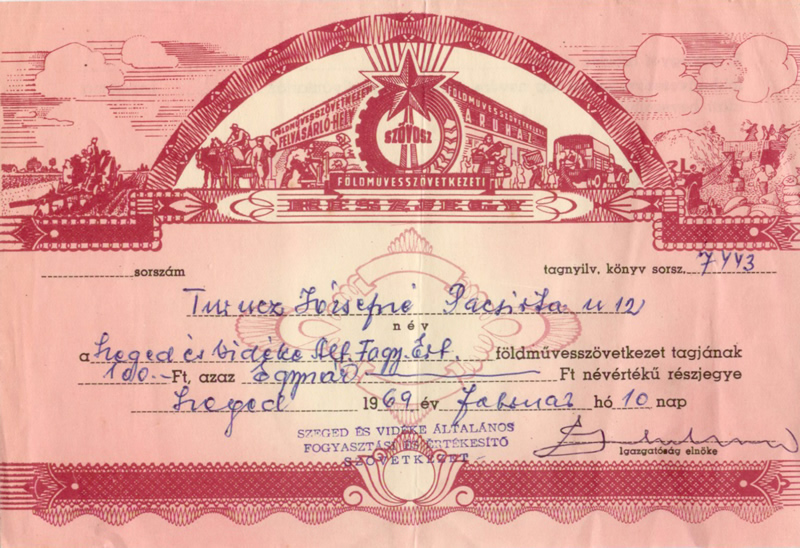 FÖLDMŰVESSZÖVETKEZETI
FELVÁSÁRLÓ HELY
SZÖVOSZ
FÖLDMŰVESSZÖVETKEZETI
ÁRUHÁZ
FÖLDMŰVESSZÖVETKEZETI
RÉSZJEGY
sorszám tagnyilv. könyv sorsz. 7443
Turucz Józsefné Pacsirta u 12
név
a Szeged és Vidéke Ált. Fogy. Ért. földművesszövetkezet tagjának
100.- Ft, azaz Egyszáz Ft névértékű részjegye
Szeged 1969 év Február hó 10 nap
SZEGED ÉS VIDÉKE ÁLTALÁNOS
FOGYASZTÁSI ÉS ÉRTÉKESÍTŐ
SZÖVETKEZET
Igazgatóság elnöke